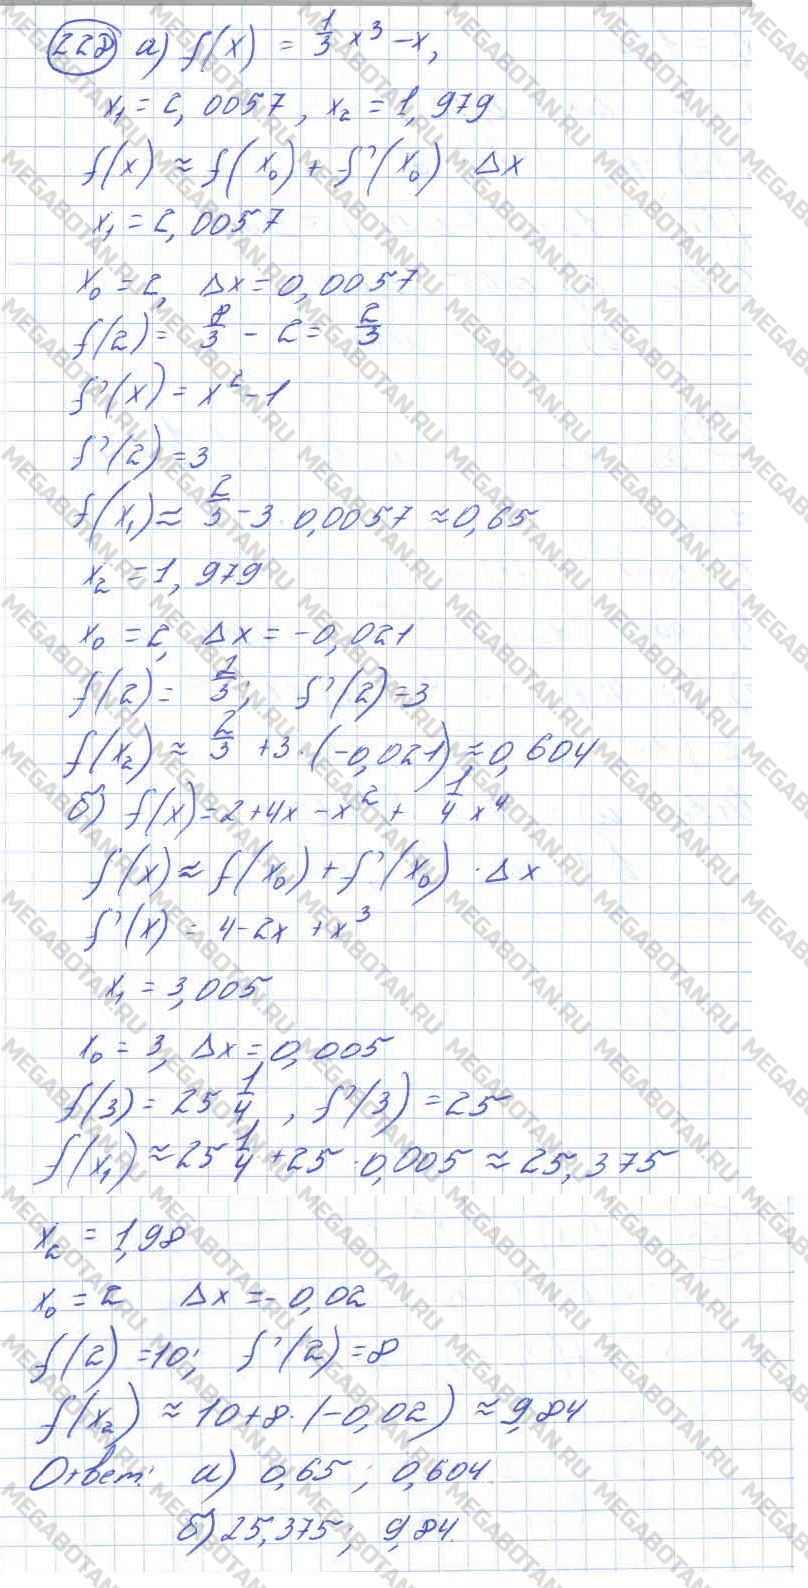 228 а) f(x) = 1/3 x³ - x,
x₁ = 2,0057, x₂ = 1,979
f(x) ≈ f(x₀) + f'(x₀) · Δx
x₁ = 2,0057
x₀ = 2, Δx = 0,0057
f(2) = 8/3 - 2 = 2/3
f'(x) = x² - 1
f'(2) = 3
f(x₁) ≈ 2/3 - 3 · 0,0057 ≈ 0,65
x₂ = 1,979
x₀ = 2, Δx = -0,021
f(2) = 2/3; f'(2) = 3
f(x₂) ≈ 2/3 + 3 · (-0,021) ≈ 0,604
б) f(x) = 2 + 4x - x² + 1/4 x⁴
f(x) ≈ f(x₀) + f'(x₀) · Δx
f'(x) = 4 - 2x + x³
x₁ = 3,005
x₀ = 3, Δx = 0,005
f(3) = 25 1/4, f'(3) = 25
f(x₁) ≈ 25 1/4 + 25 · 0,005 ≈ 25,375
x₂ = 1,98
x₀ = 2 Δx = -0,02
f(2) = 10; f'(2) = 8
f(x₂) ≈ 10 + 8 · (-0,02) ≈ 9,84
Ответ: а) 0,65; 0,604
б) 25,375; 9,84.
MEGABOTAN.RU